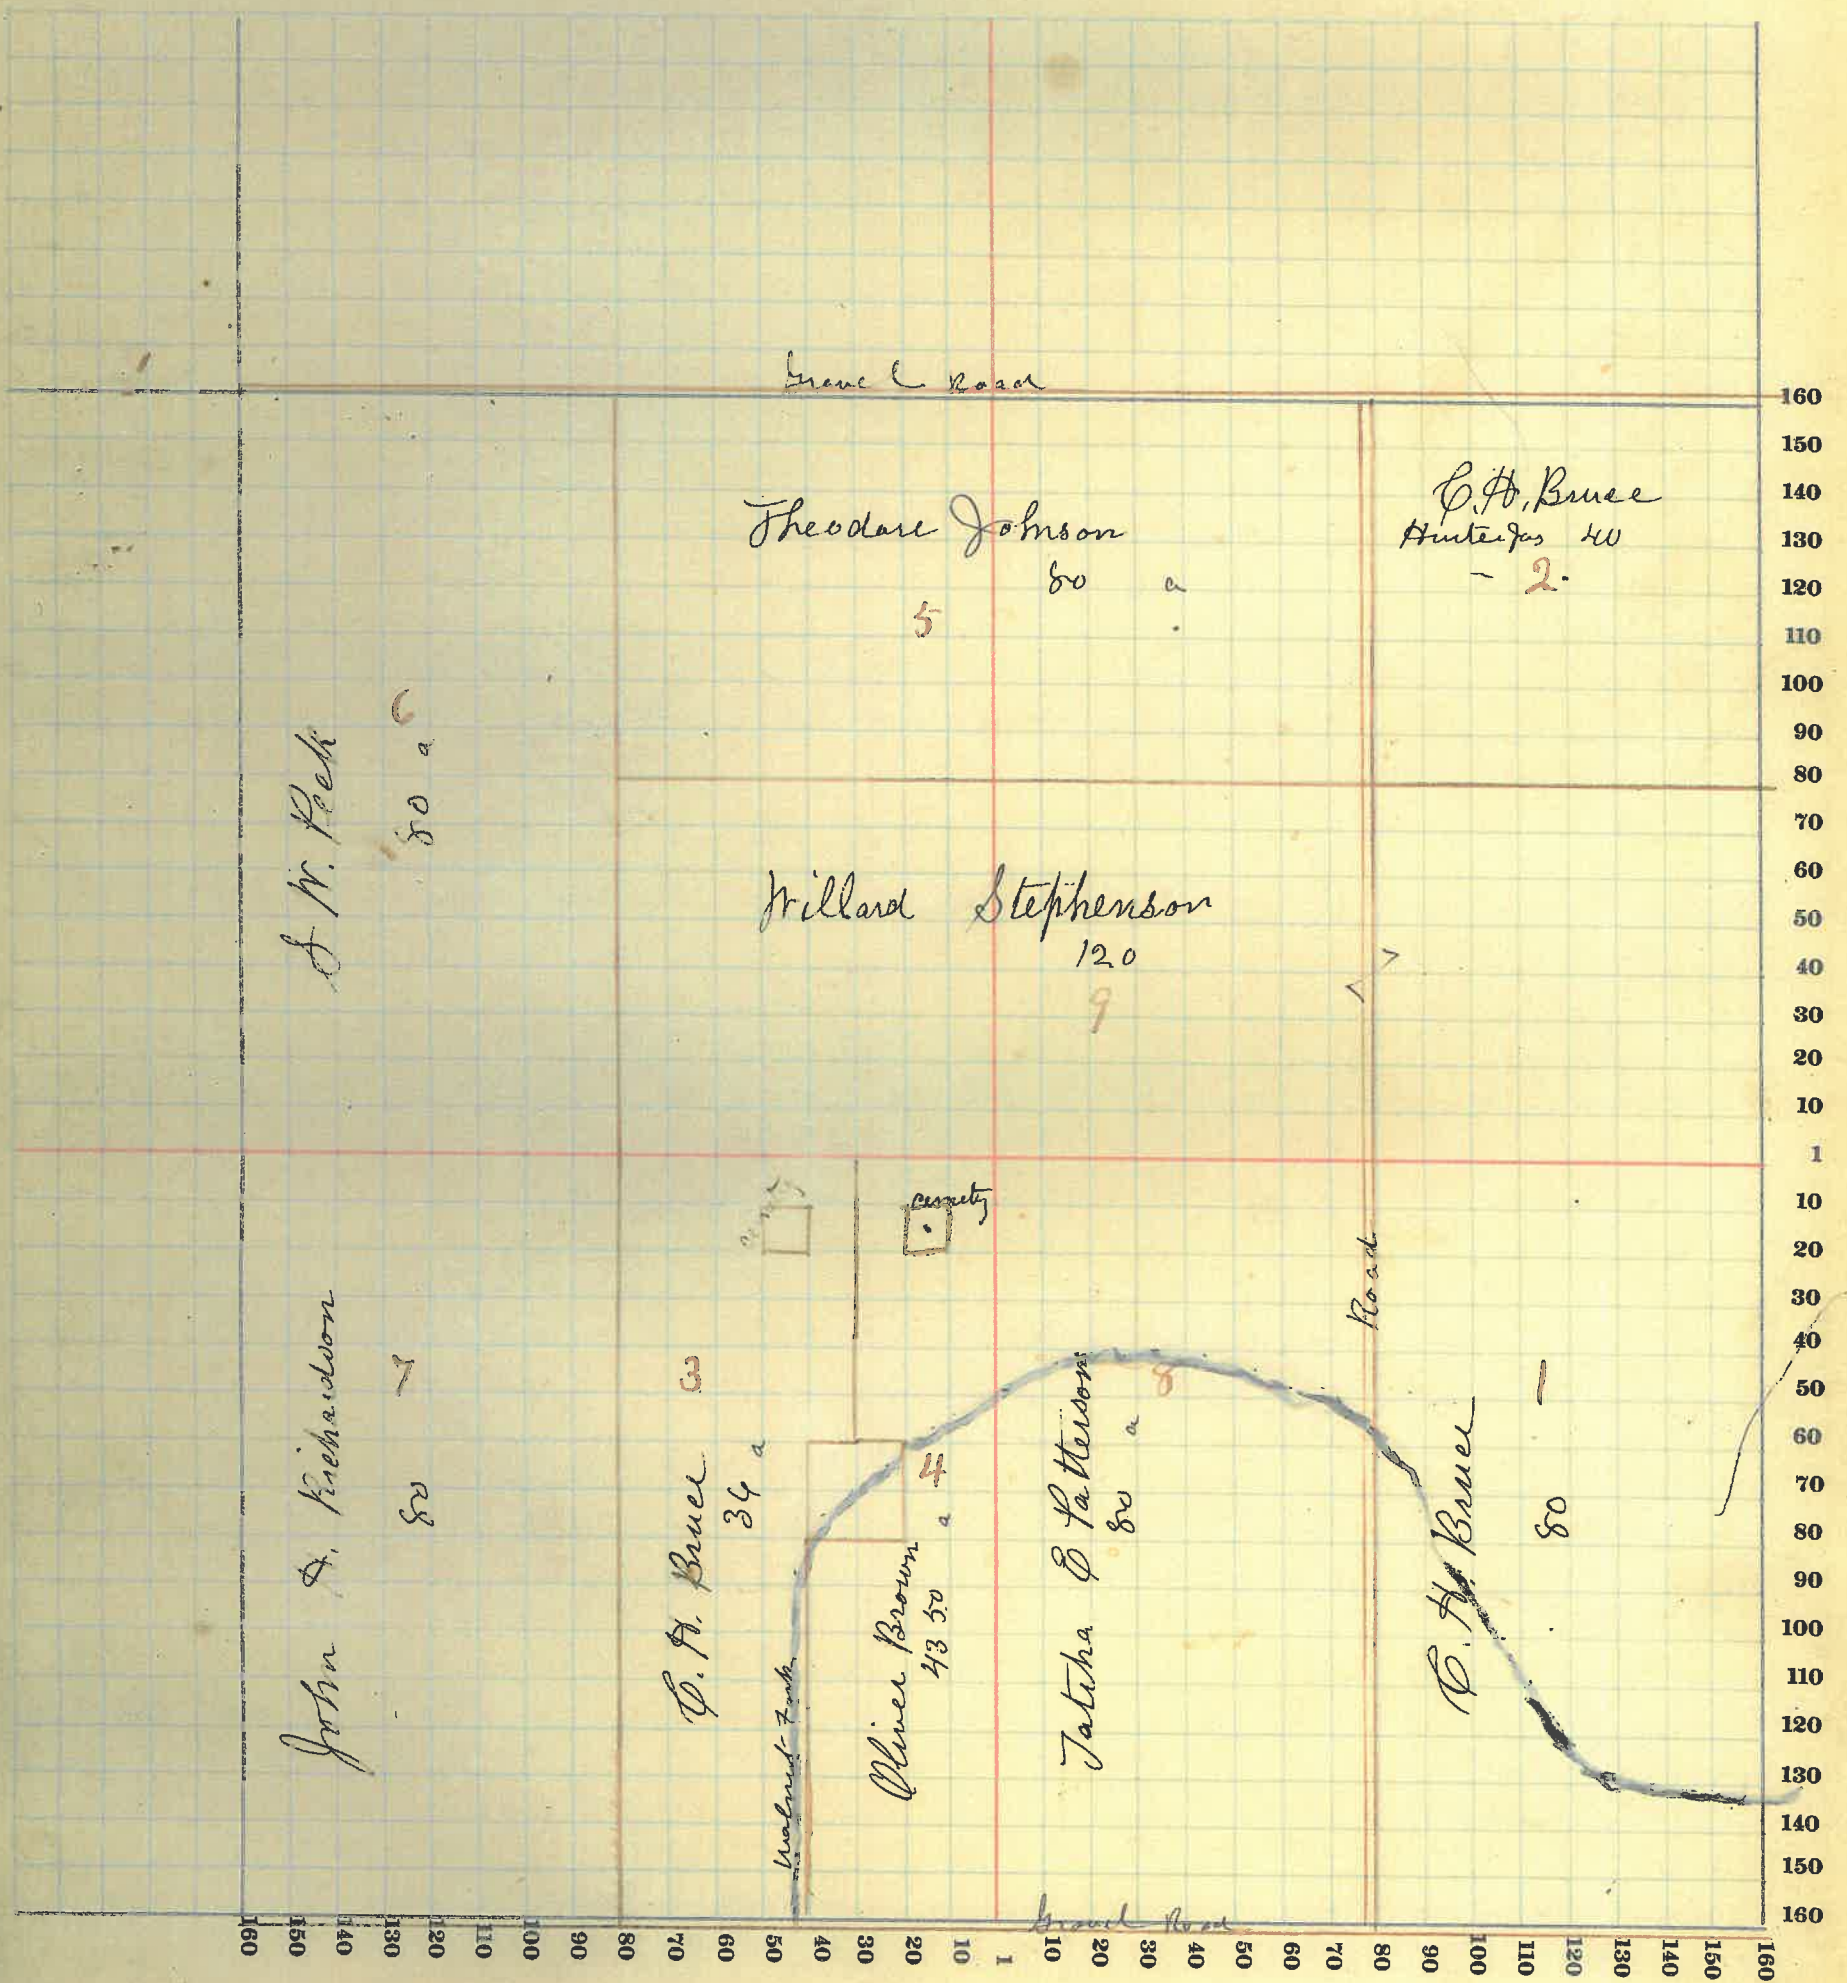 Gravel Road
Theodore Johnson
80 a
5
C. H. Bruce
40
2.
S W. Peek
80 a
6
Willard Stephenson
120
9
cemety
Road
John A. Richardson
80
7
C. H. Bruce
36 a
3
Walnut Fork
Oliver Brown
43 50 a
4
Tatitha E Patterson
80 a
8
C. H. Bruce
80
1
Gravel Road
160
150
140
130
120
110
100
90
80
70
60
50
40
30
20
10
1
10
20
30
40
50
60
70
80
90
100
110
120
130
140
150
160
160 150 140 130 120 110 100 90 80 70 60 50 40 30 20 10 1 10 20 30 40 50 60 70 80 90 100 110 120 130 140 150 160